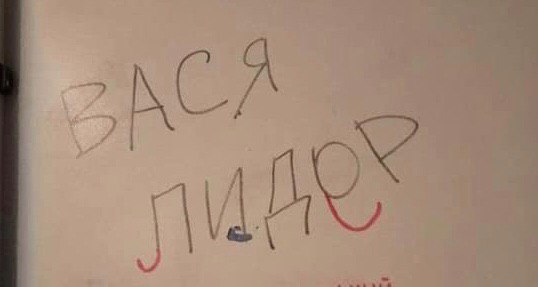 ВАСЯ
ЛИДеР